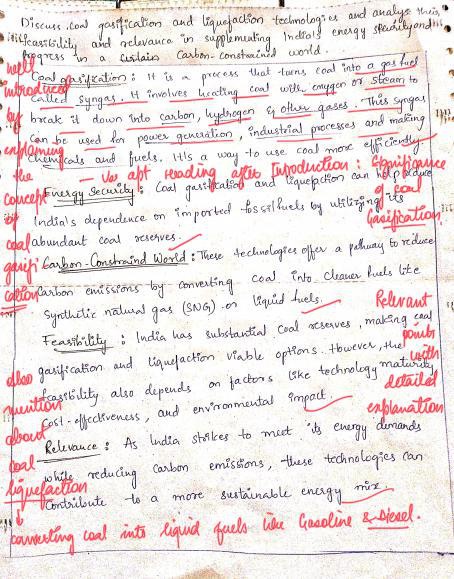 Discuss coal gasification and liquefaction technologies and analyse their
feasibility and relevance in supplementing India's energy security and
progress in a Carbon-constrained world.
well
introduced
by
explaining
the
concept
of
coal
gasifi
cation
Coal gasification: It is a process that turns coal into a gas fuel
called syngas. It involves heating coal with oxygen or steam to
break it down into carbon, hydrogen & other gases. This syngas
can be used for power generation, industrial processes and making
chemicals and fuels. It's a way to use coal more efficiently
- Use apt Heading after Introduction: Significance
of coal
Gasification
Energy Security: Coal gasification and liquefaction can help reduce
India's dependence on imported fossil fuels by utilizing its
abundant coal reserves.
Carbon-Constraind World: These technologies offer a pathway to reduce
carbon emissions by converting coal into cleaner fuels like
Synthetic natural gas (SNG) or liquid fuels.
Relevant
points
with
detailed
explanation
Feasibility: India has substantial coal reserves, making coal
gasification and liquefaction viable options. However, the
feasibility also depends on factors like technology maturity
cost-effectiveness, and environmental impact.
also
mention
about
coal
liquefaction
Relevance: As India strikes to meet its energy demands
while reducing carbon emissions, these technologies can
contribute to a more sustainable energy mix.
converting coal into liquid fuels like Gasoline & Diesel.